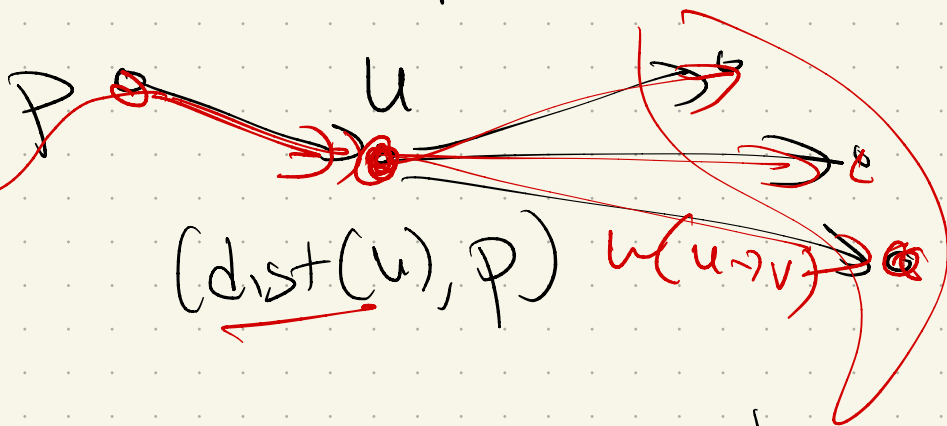 P
u
(dist(u), p)
w(u→v)